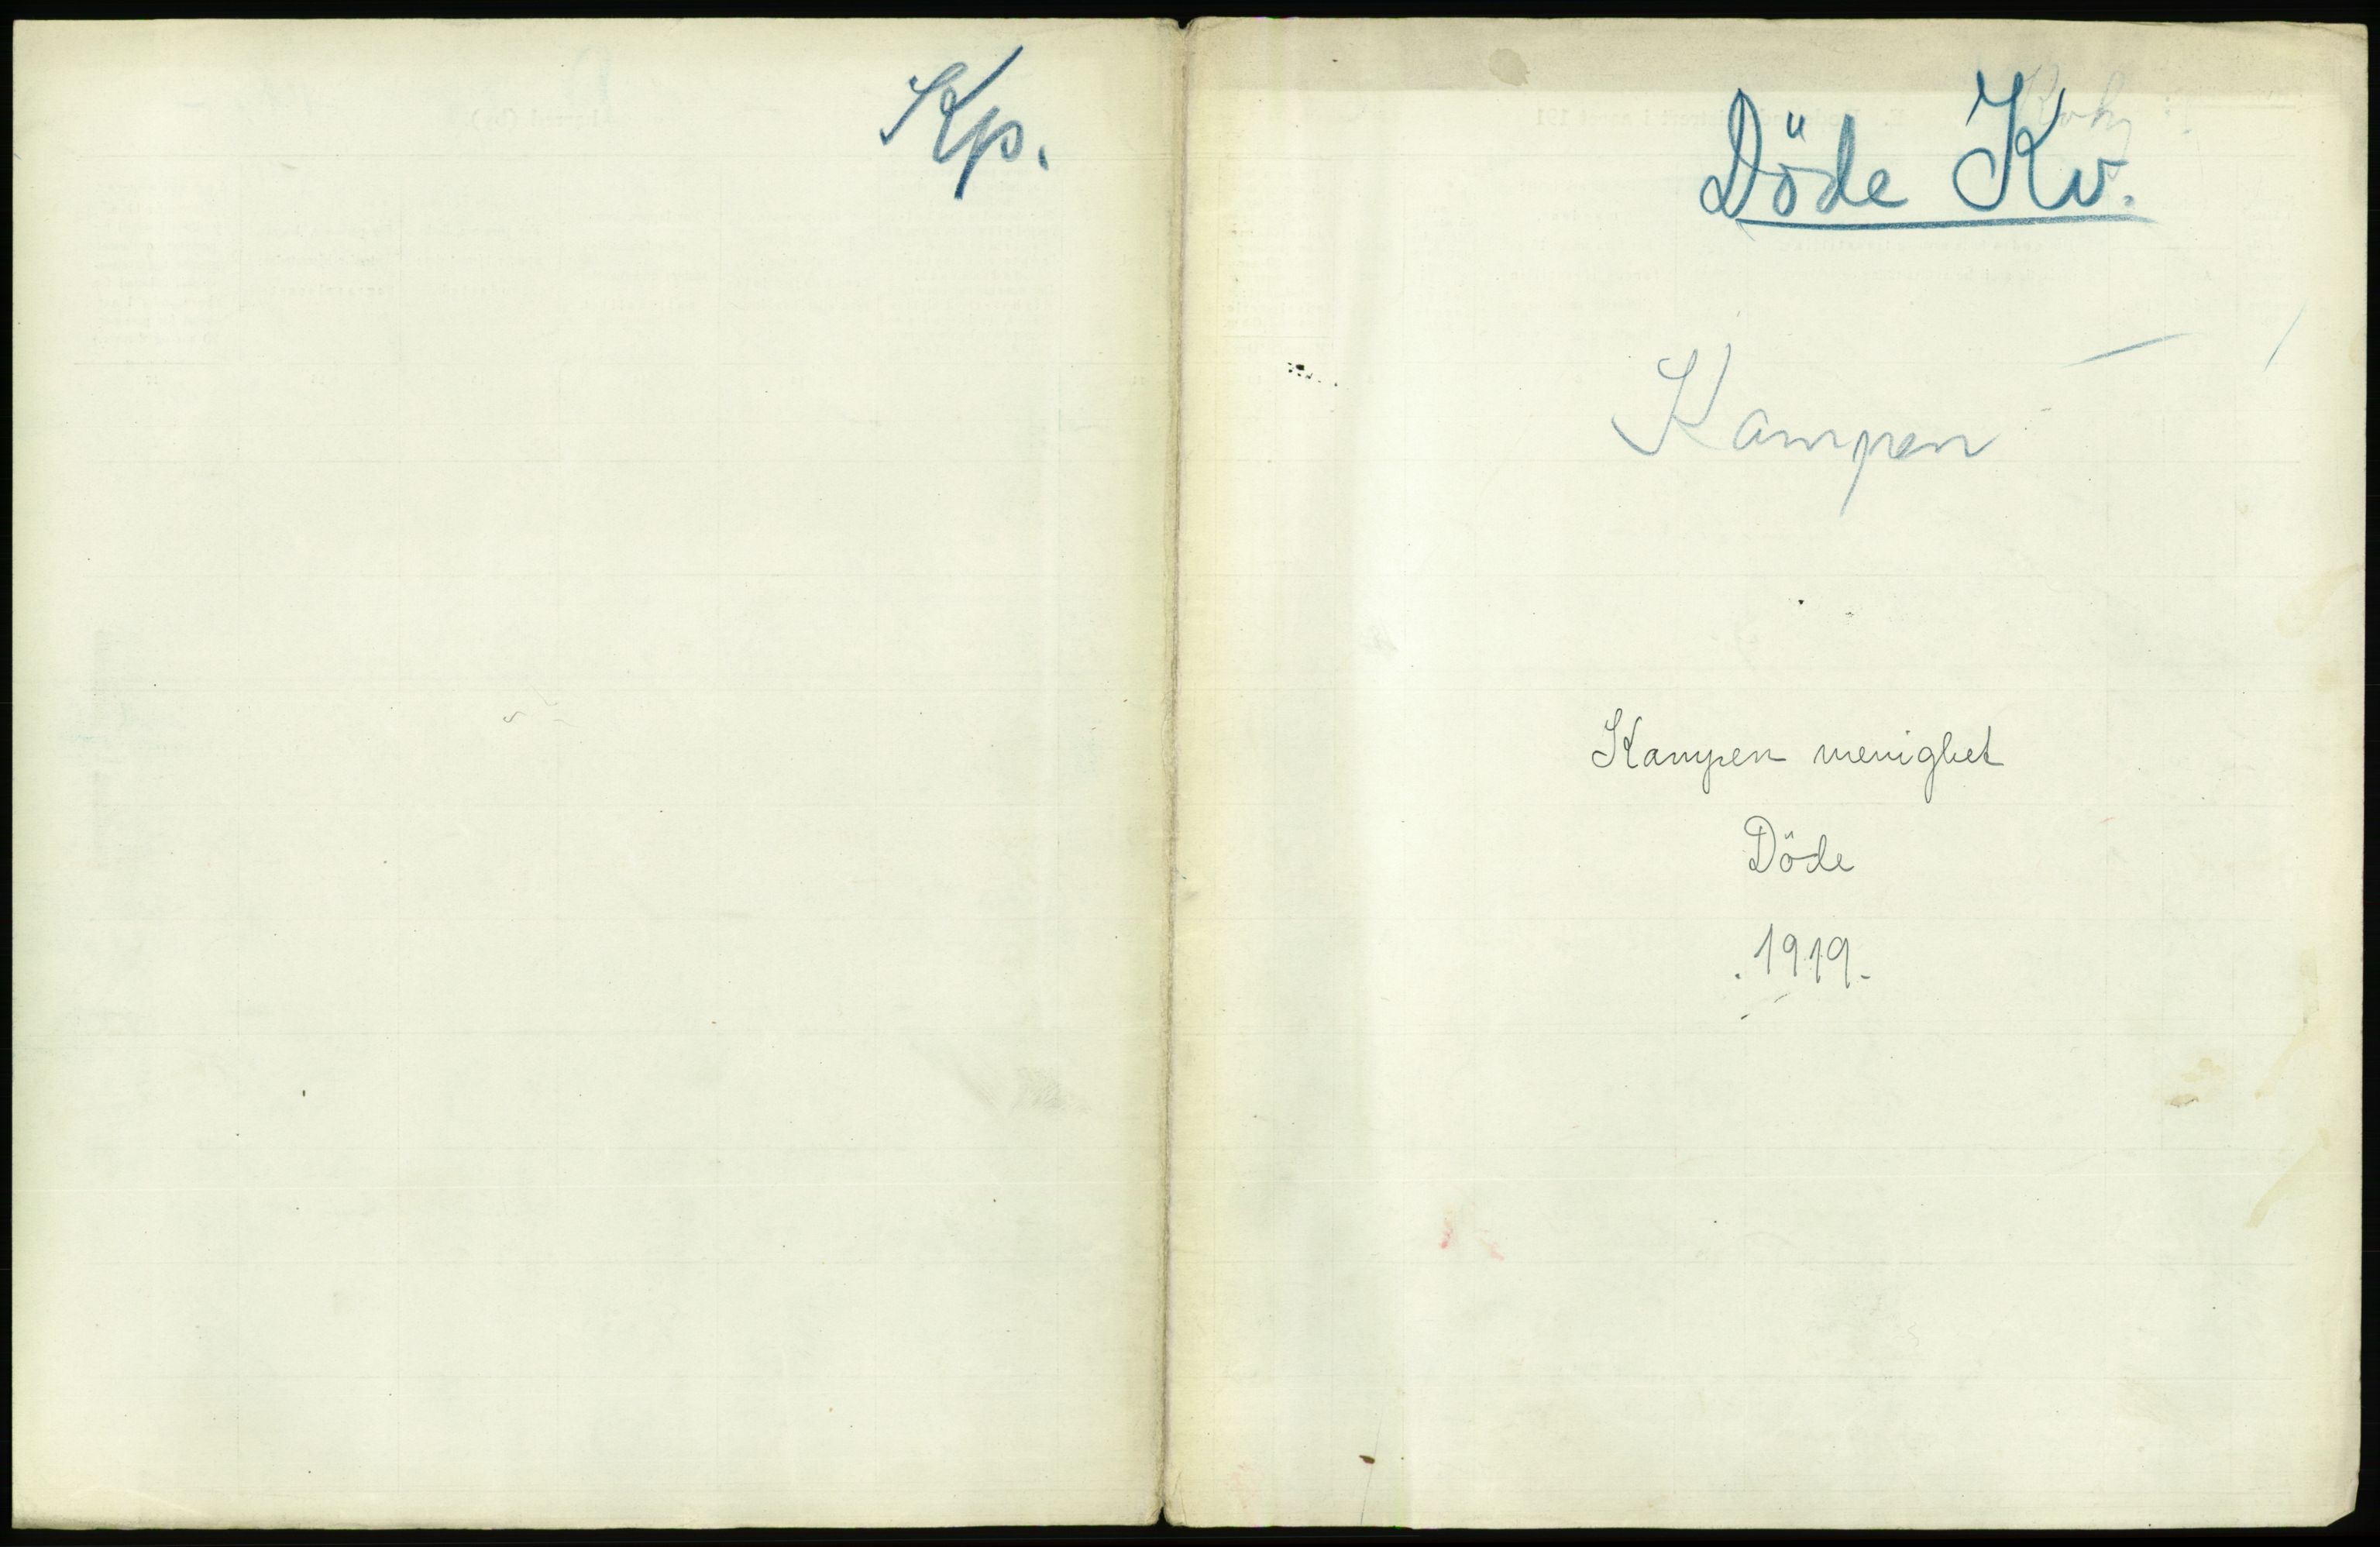 Kp.
Döde Kv.
Kampen
Kampen menighet
Döde
1919.